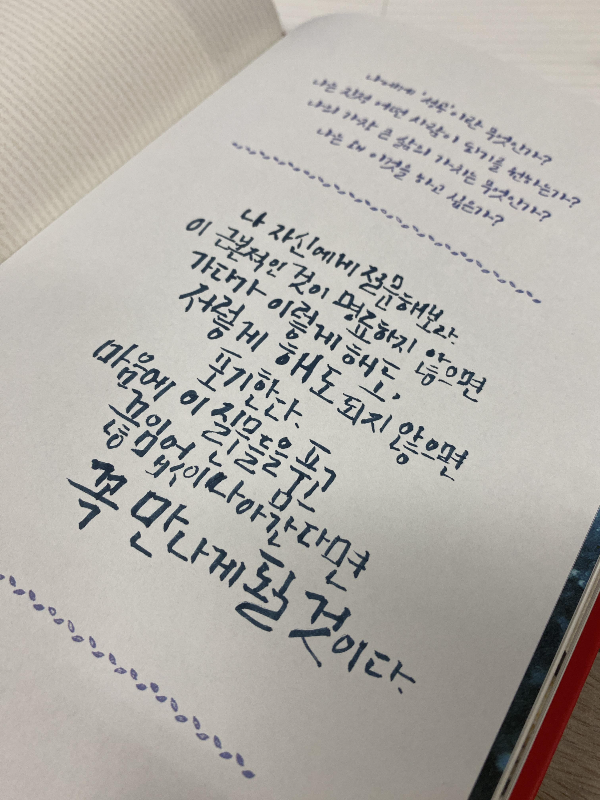 나에게 '성공'이란 무엇인가?
나는 진정 어떤 사람이 되기를 원하는가?
나의 가장 큰 삶의 가치는 무엇인가?
나는 왜 이것을 하고 싶은가?
나 자신에게 질문해보라.
이 근본적인 것이 명료하지 않으면
가다가 이렇게 해도,
저렇게 해도 되지 않으면
포기한다.
마음에 이 질문들을 품고
끊임없이 나아간다면
꼭 만나게 될 것이다.